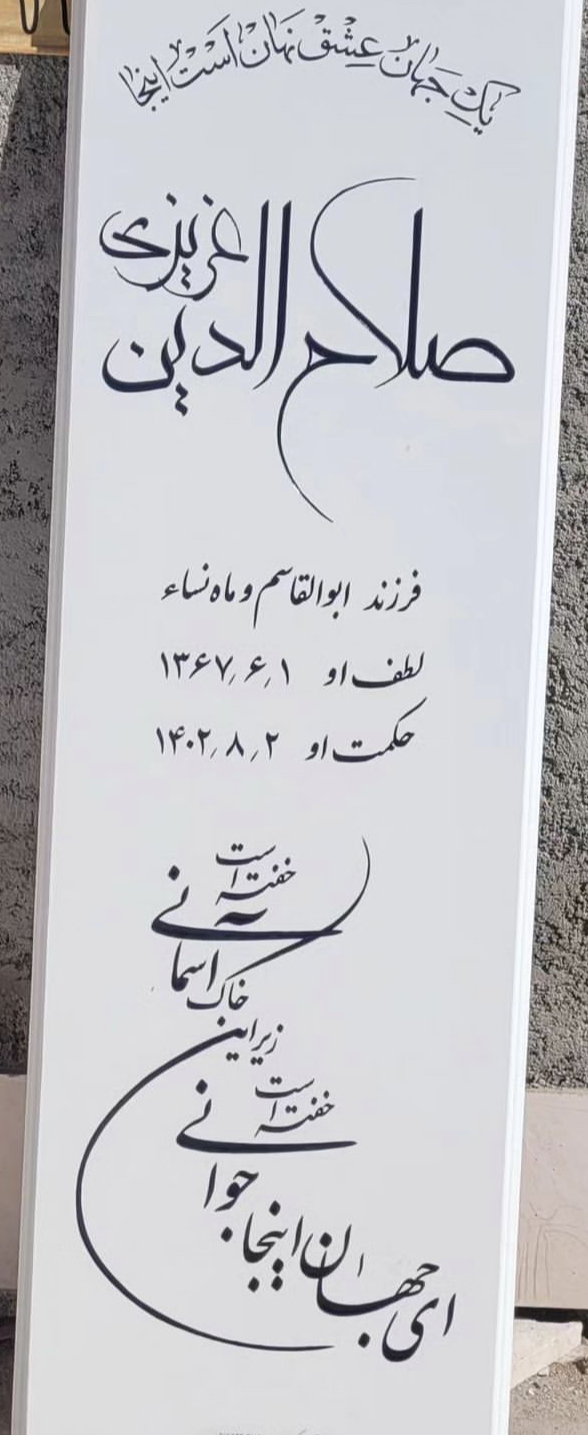 یک جهان عشق نهان است اینجا
صلاح الدین عزیزی
فرزند ابوالقاسم و ماه نساء
لطف او ۱۳۶۷٫۶٫۱
حکمت او ۱۴۰۲٫۸٫۲
ای جهان اینجا جوانی خفته است
زیر این خاک آسمانی خفته است